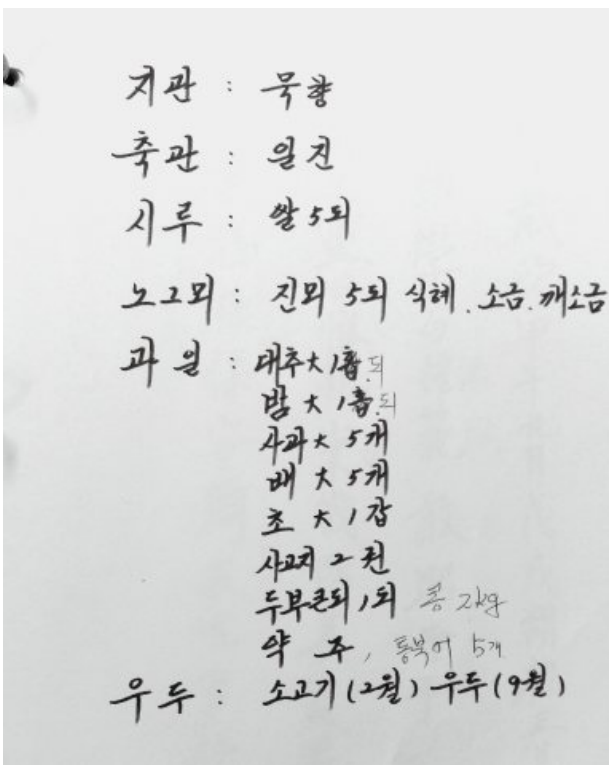 지관 : 묵향
축관 : 일진
시루 : 쌀 5되
노그뫼 : 진뫼 5되 식혜. 소금. 깨소금
과일 : 대추大 1홉.되
밤 大 1홉.되
사과大 5개
배 大 5개
초 大 1갑
사고지 2 권
두부큰되 1되 콩 2kg
약 주, 통북어 5개
우두 : 소고기 (2월) 우두 (9월)